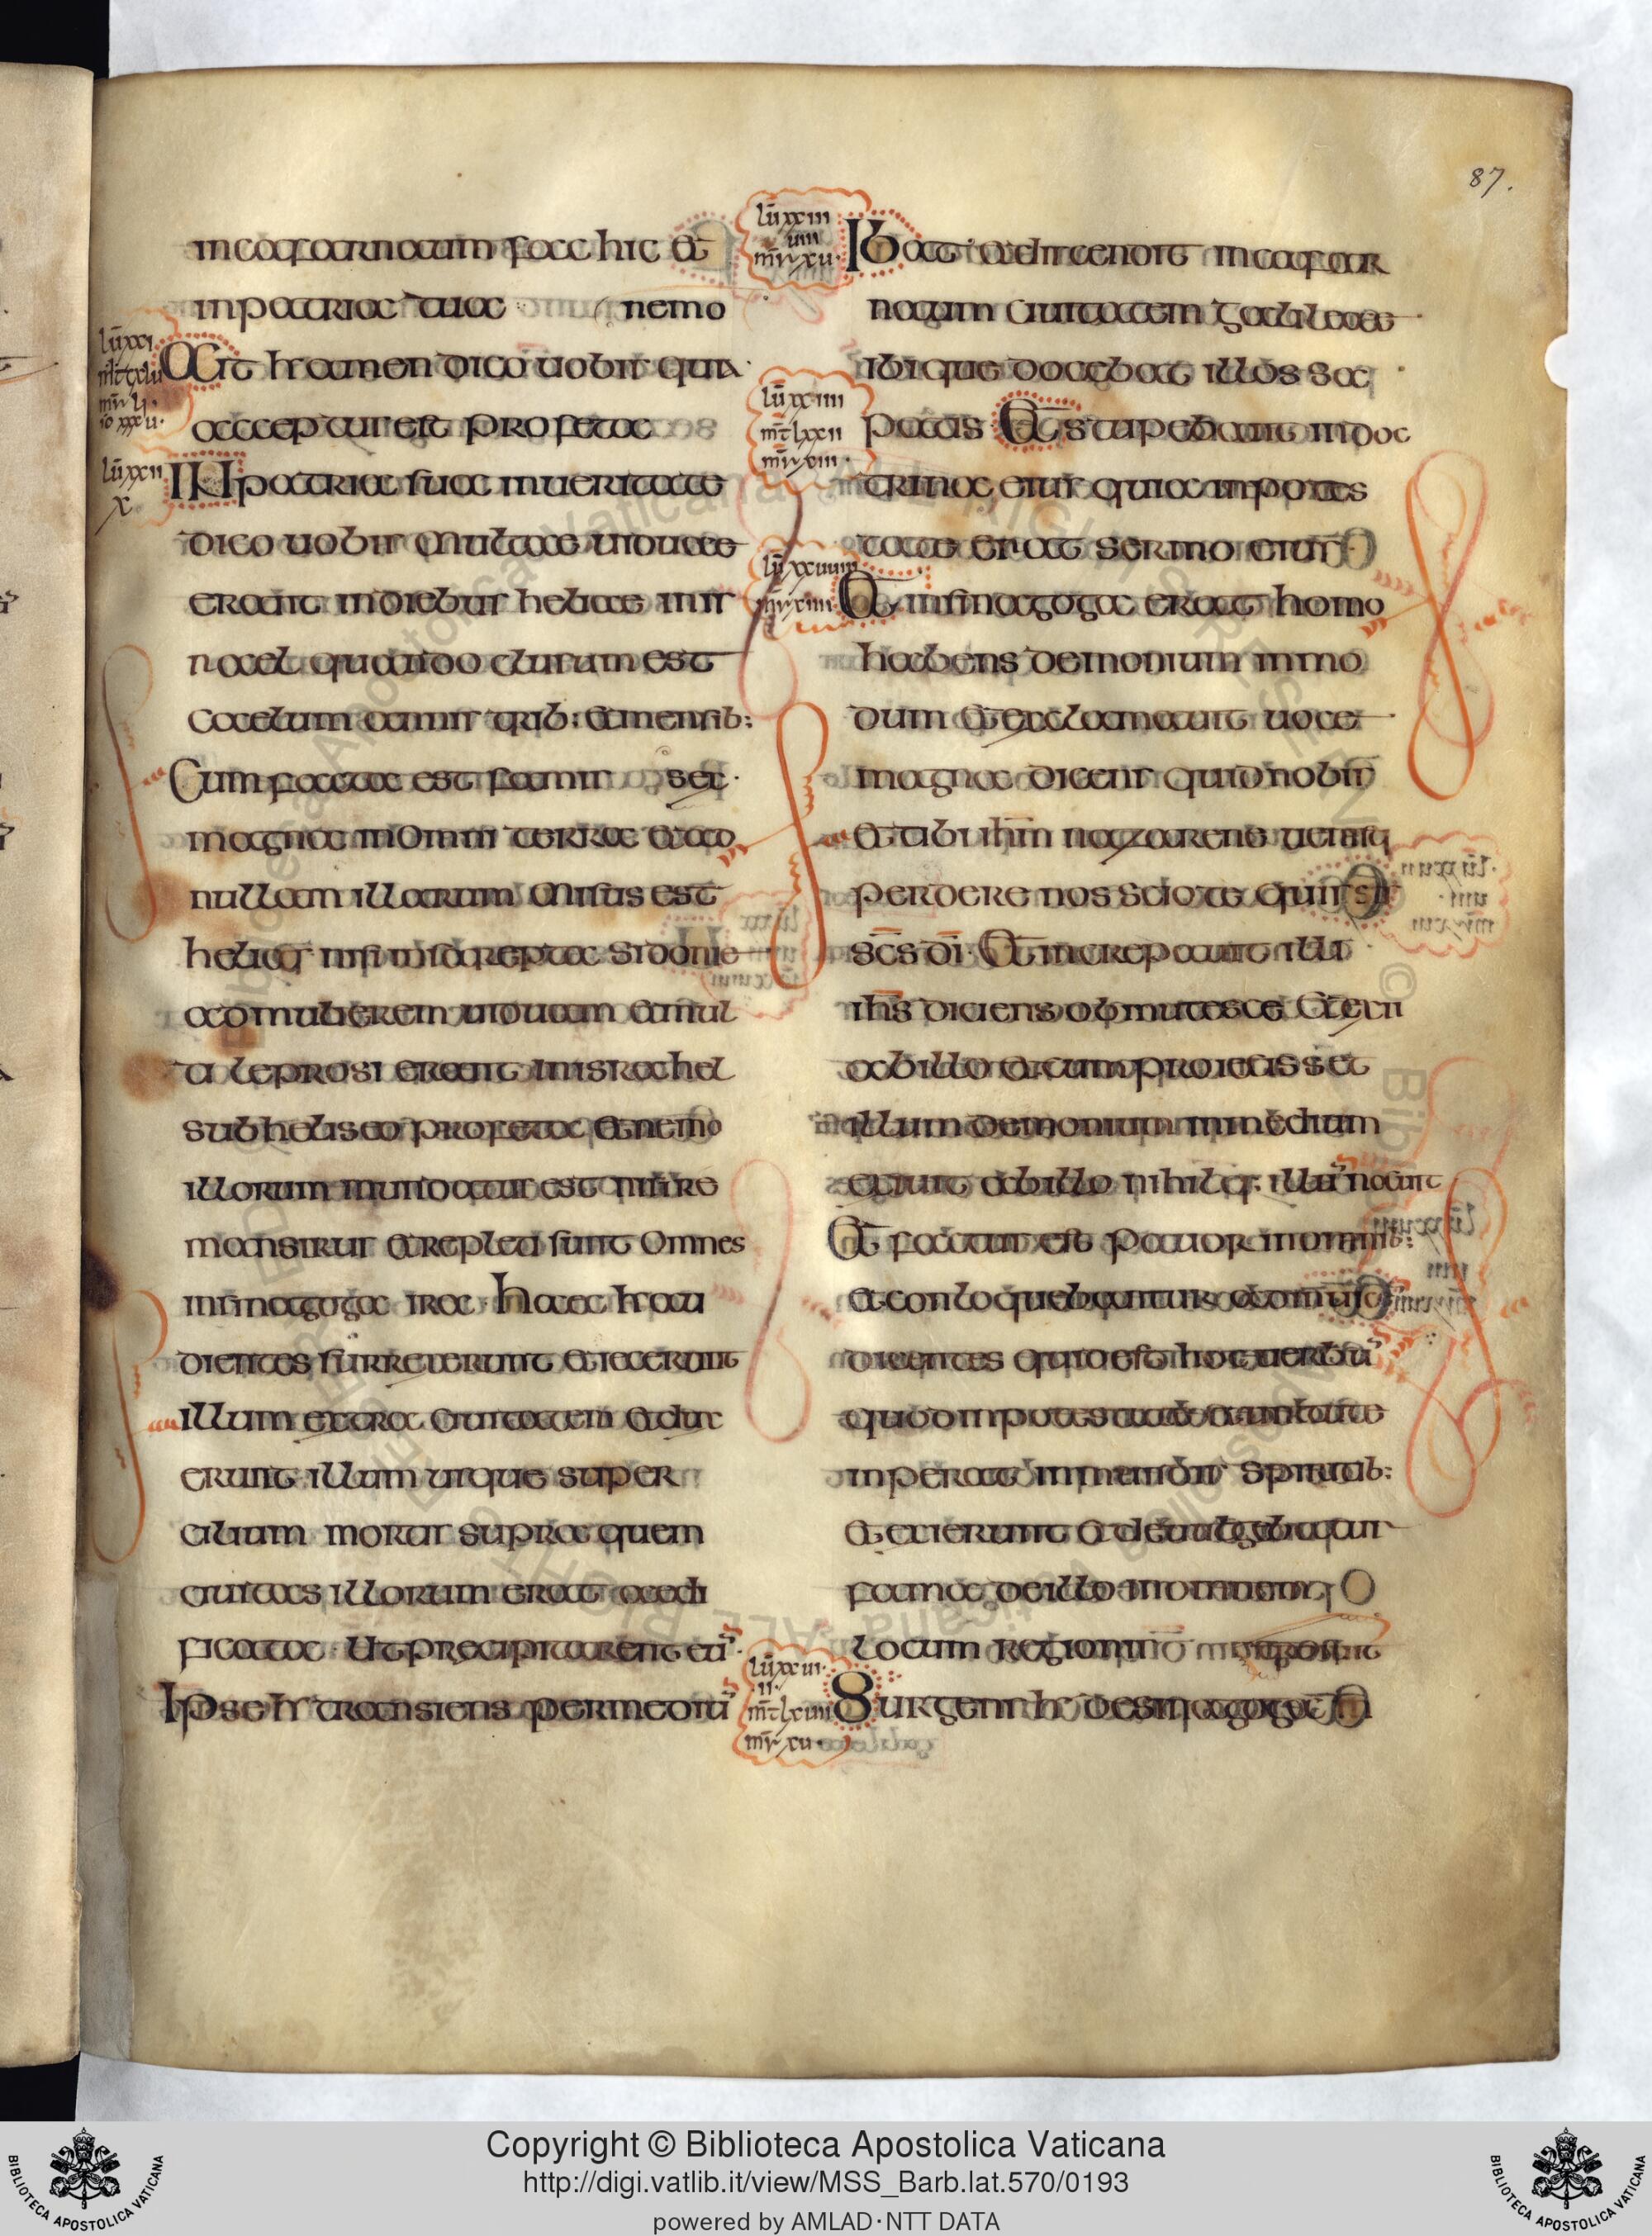 87.
incafarnaum fac hic et
inpatria tua nemo
lū xxi
mt cxlii
mr li
io xxxu
Ait h amen dico uobis quia
acceptus est profeta
lū xxii
x
IN patria sua inueritate
dico uobis multae uiduae
erant indiebus heliae inis
rahel quando clusum est
caelum annis trib: et mensib:
Cum facta est famis sex
magna inomni terra et ad
nullam illarum misus est
helias nisi insarepta sidonie
ad mulierem uiduam et mul
ti leprosi erant inisrahel
sub heliseo profeta et nemo
illorum mundatus est nisi ne
man sirus et repleti sunt omnes
insinagoga ira haec h au
dientes surrexerunt et iecerunt
illum extra ciuitatem et dux
erunt illum usque super
cilium montis supra quem
ciuitas illorum erat aedi
ficata ut precipitarent eū
Ipse h transiens per mediū
lū xxiii
iiii
mr xu
Ibat et discendit incafar
naum ciuitatem galileae
ibique docebat illos sa
lū xxiiii
mt lxxii
mr xiii
patis Et stupebant indoc
trina eius quia inpotes
tate erat sermo eius
lū xxuiiii
mr xiiii
Et insinagoga erat homo
habens demonium inmo
dum et exclamauit uoce
magna dicens quid nobis
et tibi ihm nazarene uenisti
perdere nos scio te qui sis
scs di Et increpauit illi
ihs diciens obmutesce Et exii
ab illo et cum proiecisset
illum demonium inmedium
exiuit ab illo nihilq: illū nocuit
Et factus est pauor inomnib:
et conloquebantur ad inuicē
dicentes quid est hoc uerbū
quod inpotestate et uirtute
inperat inmundis spiritib:
et exierunt Et deuulgabatur
fama de illo inomnem
locum regionis
lū xxui
ii
mt lxuii
mr xu
Surgens h desinagoga
Copyright © Biblioteca Apostolica Vaticana
http://digi.vatlib.it/view/MSS_Barb.lat.570/0193
powered by AMLAD·NTT DATA
BIBLIOTECA APOSTOLICA VATICANA
BIBLIOTECA APOSTOLICA VATICANA